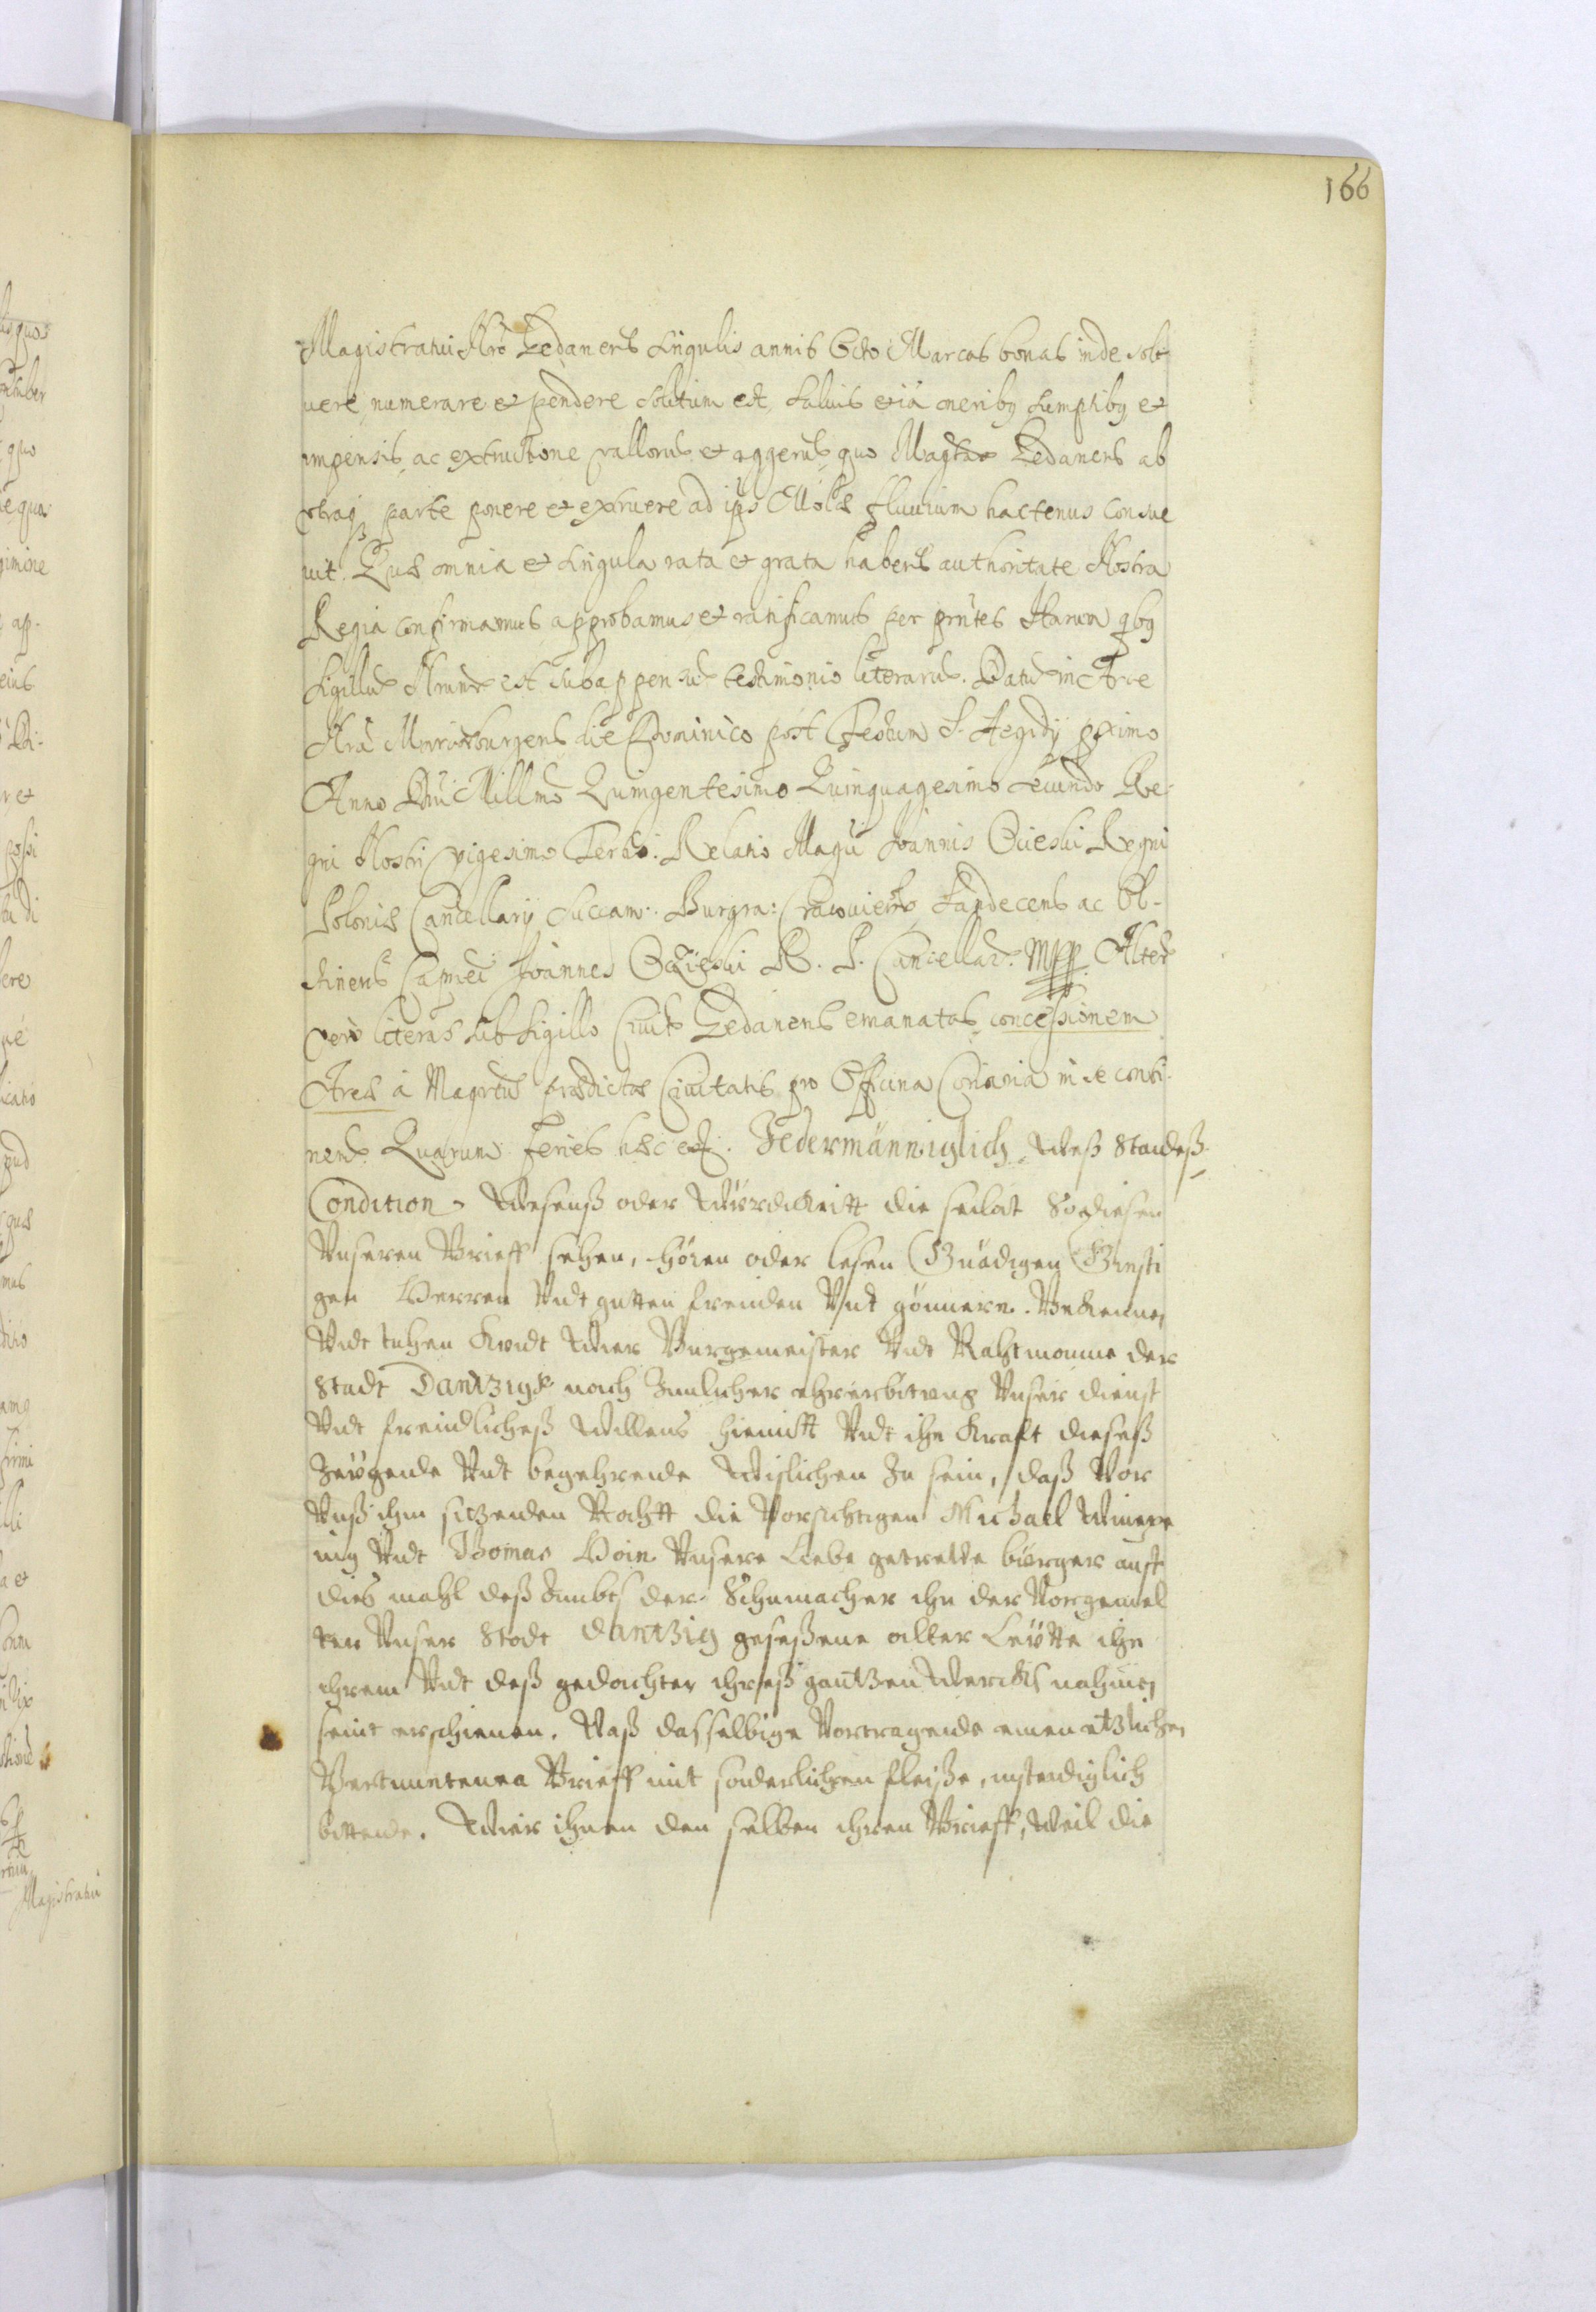 166
Magistratui Nro Gedanens Singulis annis Octo Marcas bonas inde sol-
uere, numerare et pendere solitum est, Saluis etiã oneribq Sumptibq et
impensis, ac extructione vallorum et aggerum, quo Magtus Gedanens ab
utraq parte ponere et extruere ad ips Motlae fluuium hactenus consue
uit. Quae omnia et Singula rata et grata habens authoritate Nostra
Regia confirmamus approbamus et ratificamus per prntes Harum qbq
Sigillum Nrum est subappensum testimonio literarum. Datum in Arce
Nra Marieburgens die Dominico post Festum S. Aegidij pximo
Anno Dni Millmo Quingentesimo Quinquagesimo Secundo Re-
gni Nostri vigesimo Tertio. Relatio Magci Joannis Ocieski Regni
Poloniae Cancellarij Succam: Burgra: Cracouien Sandecens ac Ol-
stinens Capnei Joannes Oczieski R. P. Cancellar. Mpp Alteras
vero literas sub Sigillo Ciuit Gedanens emanatas concessionem
Areae à Magrtu praedictae Ciuitatis pro Officina Coriaria in se conti-
nend. Quarum Series haec est. Jedermänniglich, Weß Standeß
Condition, Wesenß oder Würdickeitt die seilat So diesen
Unseren Brieff sehen, hören oder lesen Gnädigen Gunsti
gen Herren Undt gutten freinden Undt gönnern. Bekennen
Undt tuhen Kundt Wier Burgemeister Undt Rahtmanne der
Stadt Dantzigk nach Zimlicher ehrerbitung Unser dienst
Undt freindlicheß Willens hiemitt Undt ihn Kraft dieseß
Zeügende Undt begehrende Wislichen Zu sein, daß Vor
Unß ihm sitzenden Rahtt die Vorsichtigen Michael
Undt Thomas Hoin Unsere Liebe getreüe bürger auff
dies mahl deß Ambts der Schumacher ihn der Vorgemel
ten Unser Stadt Dantzig geseßene alter Leütte ihn
ihrem Undt deß gedachten ihreß gantzen Wercks nahmen
seint erschienen. Unß dasselbige Vortragende einen etzlichen
Brieff mit sonderlichen fleiße, instendiglich
bittende. Wier ihnen den selben ihren Brieff, Weil die
Magistratui